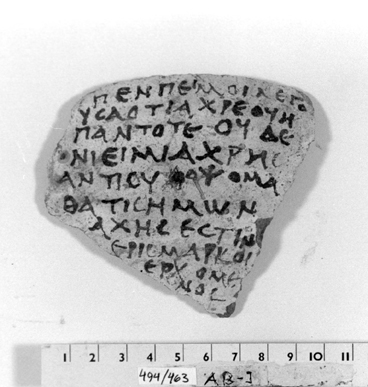 ΠΕΝΠΕΙΜΟΙΛΕΓΟ
ΥϹΑΟΤΙΑΧΡΕΘΥΗ
ΠΑΝΤΟΤΕ ΟΥ ΔΕ
ΝΙΕΙΜΙΑΧΡΗϹ
ΑΝΠΟΥ ΟΨΟΜΑ
ΘΑΤΙϹΗΜΩΝ
ΑΧΗΣ ΕϹΤΙΝ
ΕΡΙϹΜΑΡΚΟΙ
ΕΡΧΟΜΕ
ΝΟϹ
1 2 3 4 5 6 7 8 9 10 11
494/463 AB-I